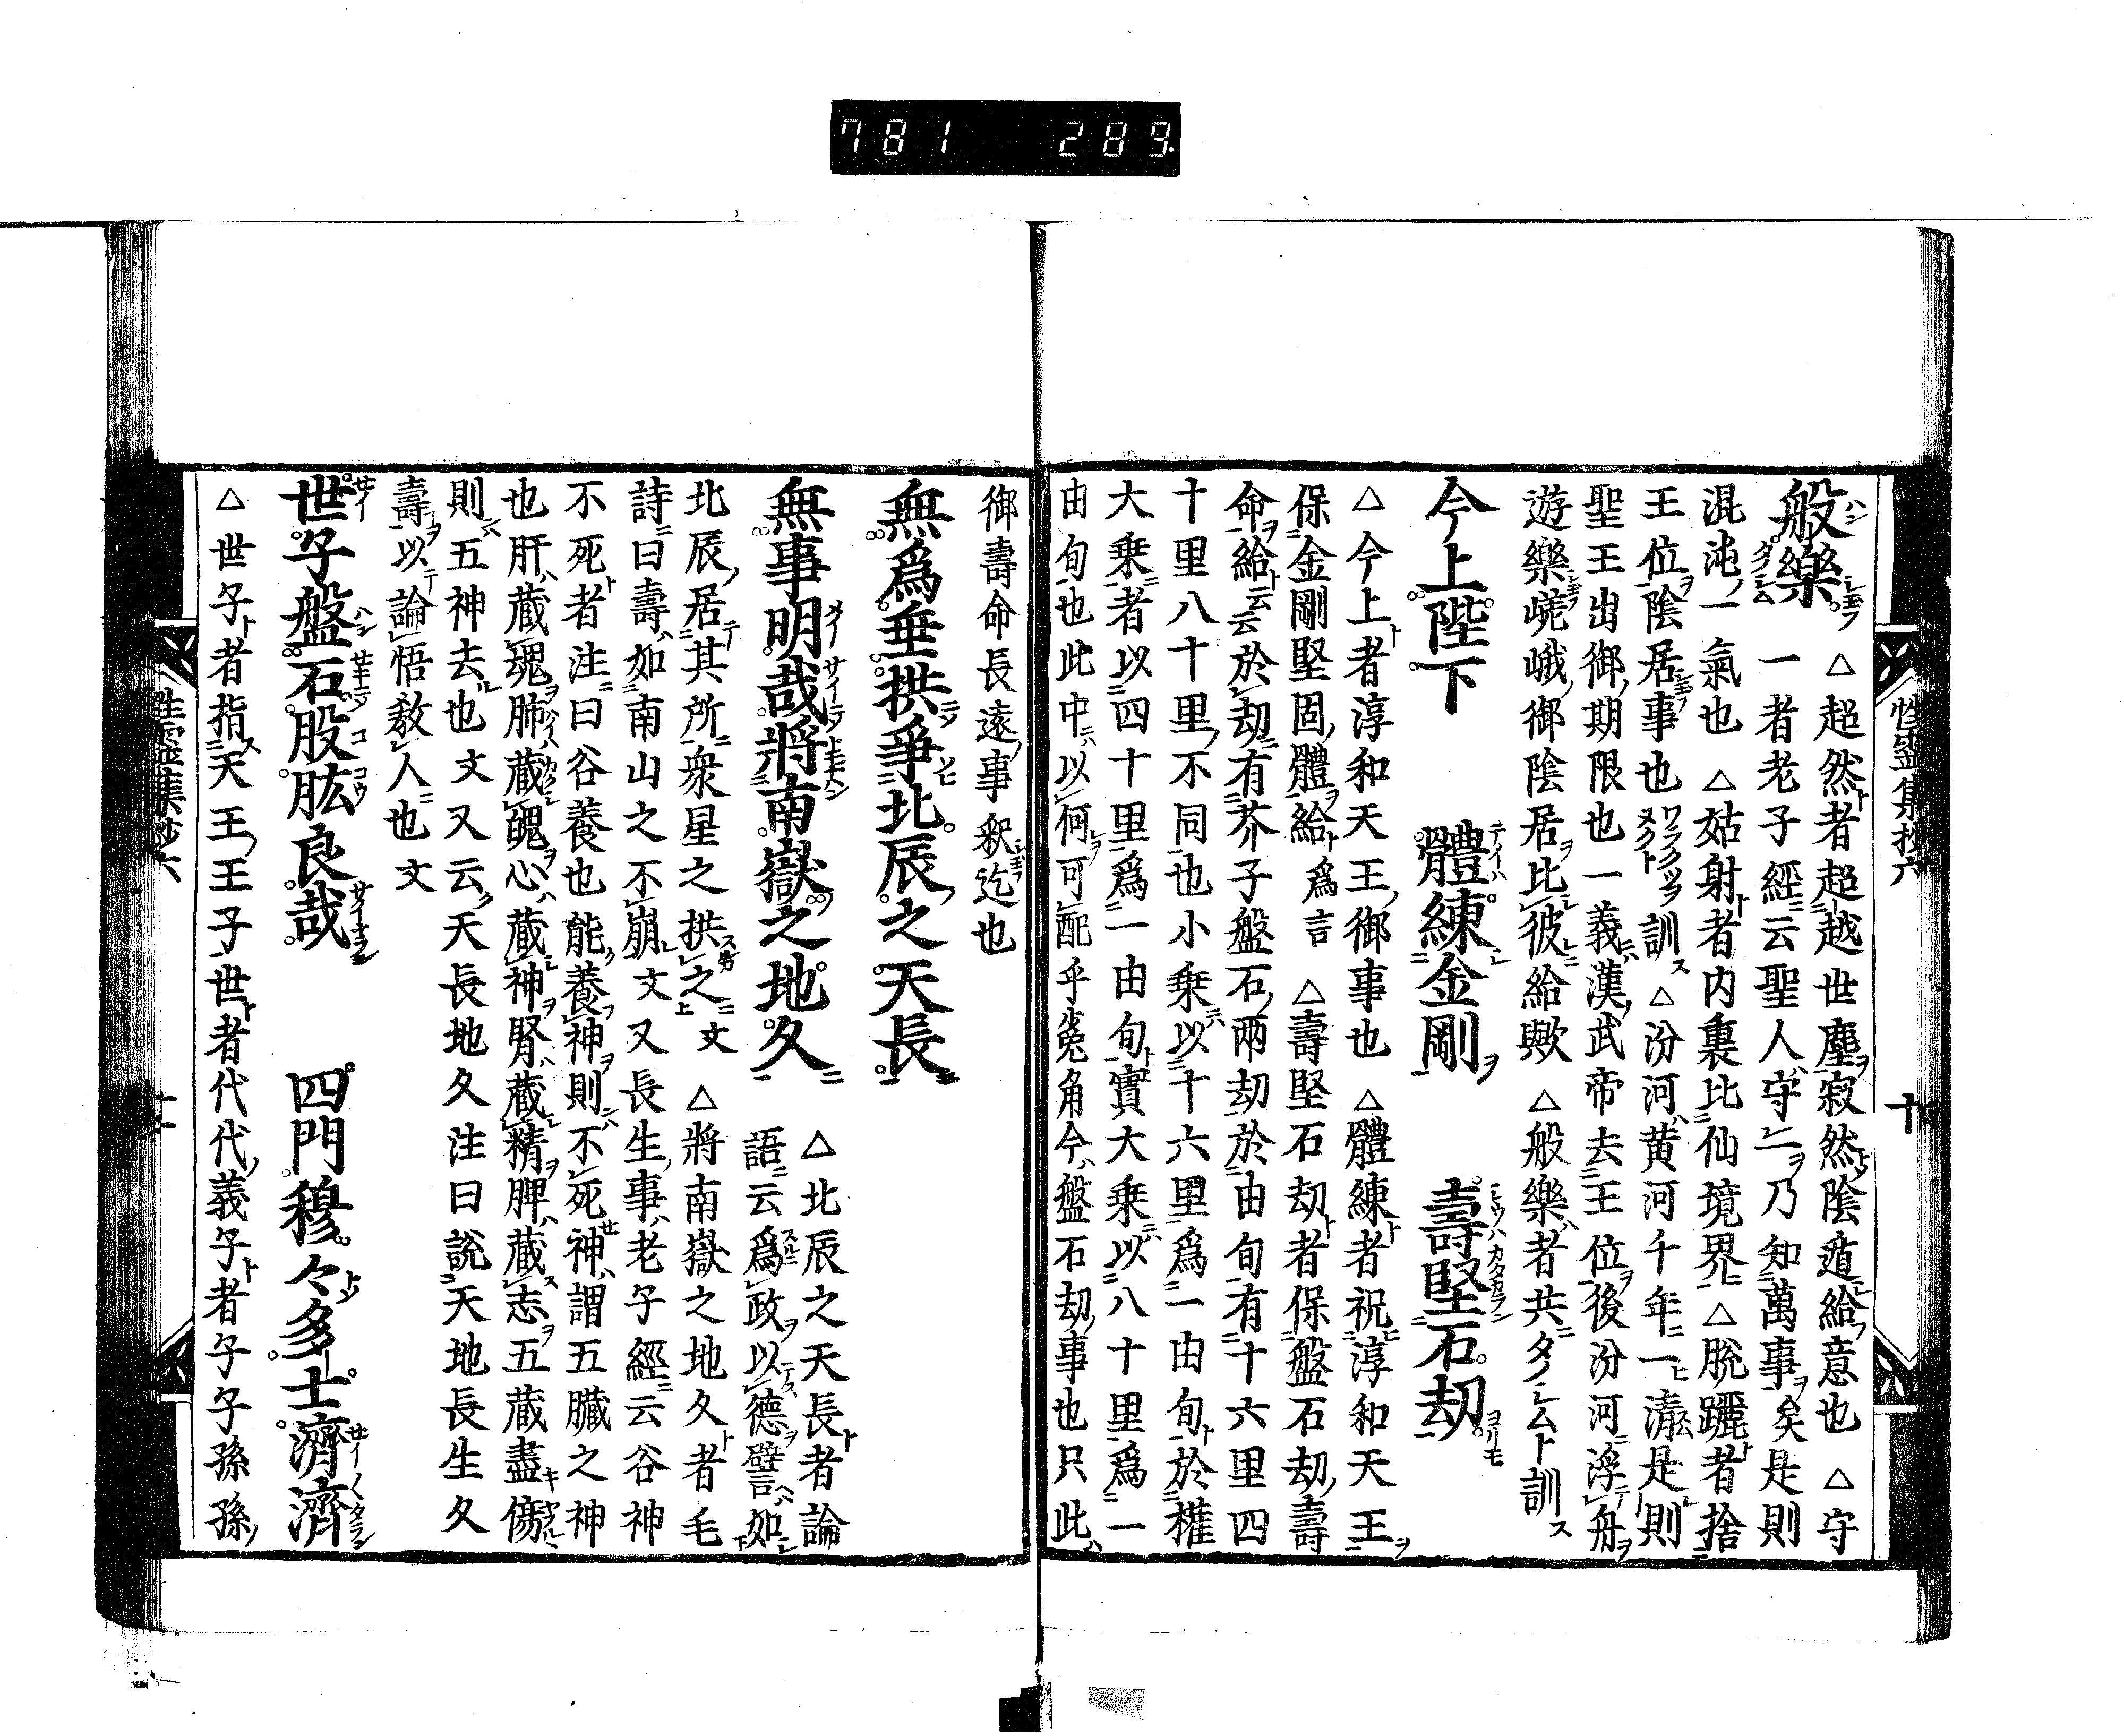 781 289
性霊集抄六 十
般樂 △超然者超越世塵寂然陰遁給意也 △守
一者老子經云聖人守一乃知萬事矣是則
混沌一氣也 △姑射者内裏比仙境界 △脱躧者捨
王位陰居事也ワラクツヲヌクト訓ス △汾河黄河千年一清是則
聖王出御期限也一義漢武帝去王位後汾河浮舟
遊樂嶢峨御陰居比彼給歟 △般樂者共タノシムト訓ス
今上陛下 體練金剛 壽堅石劫
△今上者淳和天王御事也 △體練者祝淳和天王
保金剛堅固體給爲言 △壽堅石劫者保盤石劫壽
命給云云於劫有芥子盤石兩劫於由旬有十六里四
十里八十里不同也小乗以十六里爲一由旬於權
大乗者以四十里爲一由旬實大乗以八十里爲一
由旬也此中以何可配乎兔角今盤石劫事也只此
御壽命長遠事釈迄也
無爲垂拱爭北辰之天長 △北辰之天長者論
無事明哉將南嶽之地久 語云爲政以德譬如
北辰居其所衆星之拱之文 △將南嶽之地久者毛
詩曰壽如南山之不崩文又長生事老子經云谷神
不死者注曰谷養也能養神則不死神謂五臓之神
也肝藏魂肺藏魄心藏神腎藏精脾藏志五藏盡傷
則五神去也文又云天長地久注曰說天地長生久
壽以論悟教人也文
世子盤石股肱良哉 四門穆々多士濟濟
△世子者指天王王子世者代代義子者子子孫孫
性霊集抄六